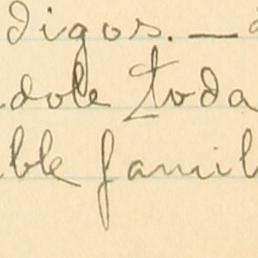 digos. —
dole toda
ble famil